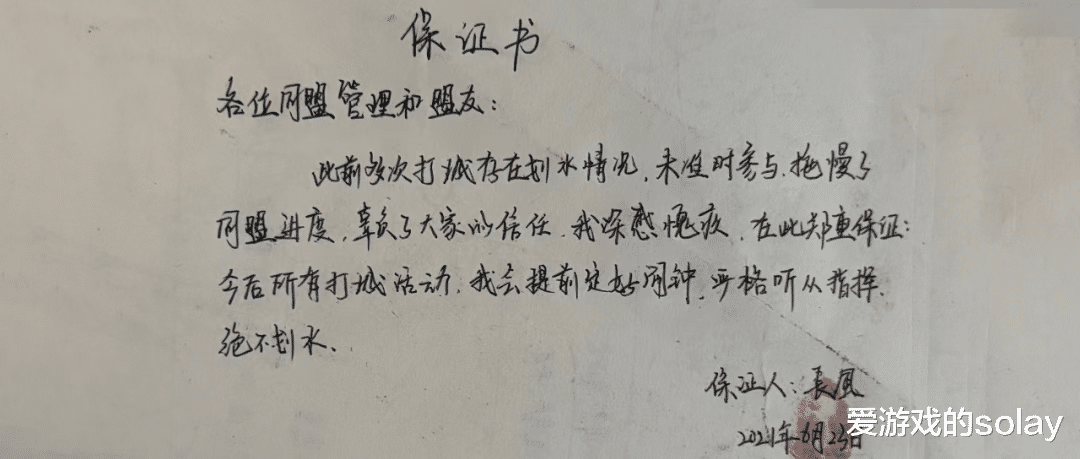 保证书
各位同盟管理和盟友：
此前多次打城存在划水情况，未准时参与，拖慢了
同盟进度，辜负了大家的信任，我深感愧疚，在此郑重保证：
今后所有打城活动，我会提前定好闹钟，严格听从指挥，
绝不划水。
保证人：長風
2021年6月23日
爱游戏的solay